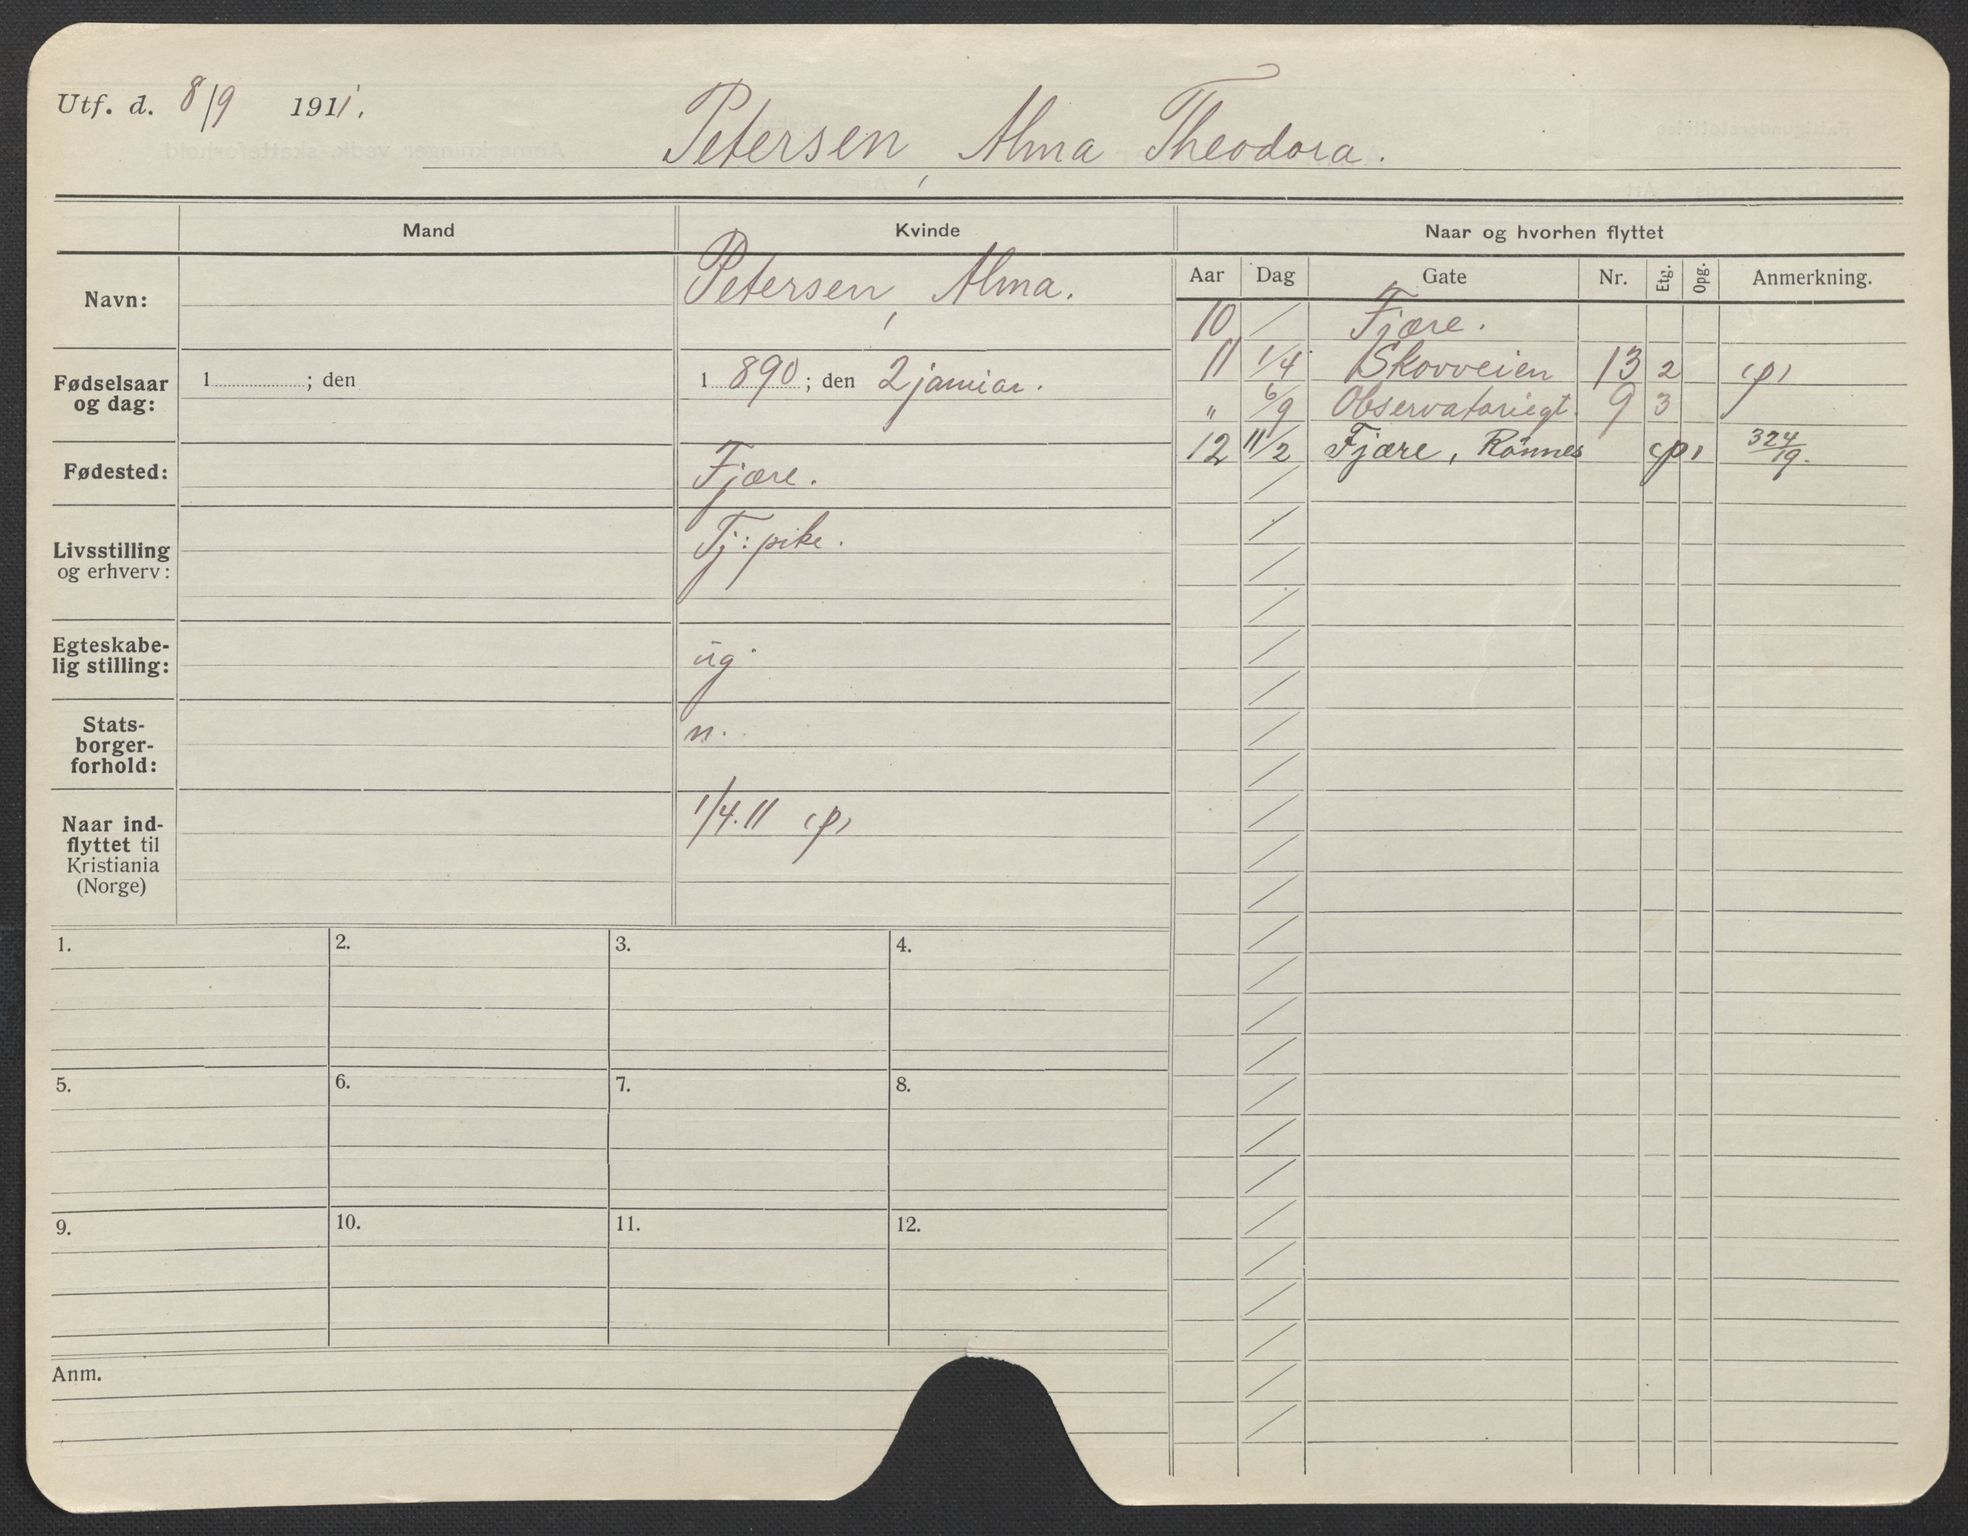 Utf. d. 8/9 1911.
Petersen, Alma Theodora.
Mand
Kvinde
Naar og hvorhen flyttet
Navn:
Petersen, Alma.
Fødselsaar og dag:
1 ; den
1 890 ; den 2 januar.
Fødested:
Fjære.
Livsstilling og erhverv:
Tj: pike.
Egteskabelig stilling:
ug
Statsborgerforhold:
n.
Naar indflyttet til Kristiania (Norge)
1/4.11 (p)
Aar Dag Gate Nr. Etg. Opg. Anmerkning.
10 / Fjære.
11 1/4 Skovveien 13 2 (p)
" 6/9 Observatoriegt. 9 3
12 11/2 Fjære, Rønnes (p) 324/19.
1. 2. 3. 4.
5. 6. 7. 8.
9. 10. 11. 12.
Anm.